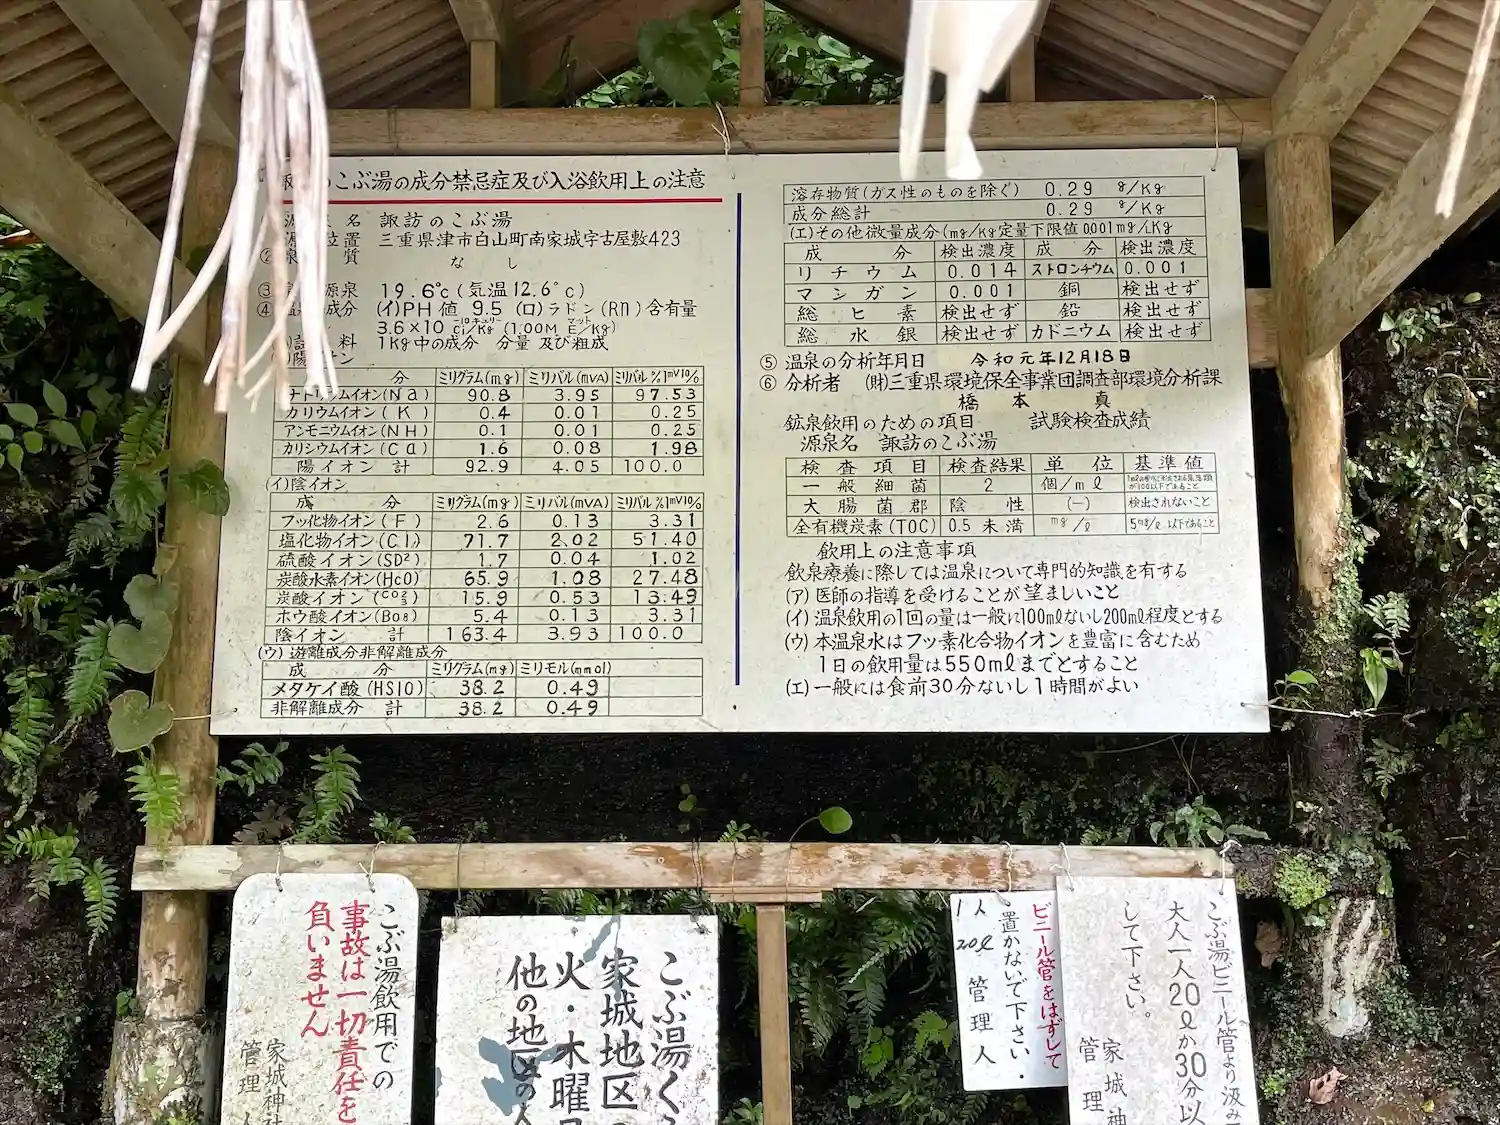 のこぶ湯の成分禁忌症及び入浴飲用上の注意
名 諏訪のこぶ湯
位置 三重県津市白山町南家城字古屋敷423
② 質 なし
③ 源泉 19.6℃(気温12.6℃)
④ 成分 (イ)PH値 9.5 (ロ)ラドン(Rn)含有量
3.6×10 Ci/Kg (1.00M E/Kg)
料 1Kg中の成分 分量及び粗成
陽イオン
分 ミリグラム(mg) ミリバル(mVA) ミリバル%1mV10/%
ナトリウムイオン(Na) 90.8 3.95 97.53
カリウムイオン(K) 0.4 0.01 0.25
アンモニウムイオン(NH) 0.1 0.01 0.25
カリシウムイオン(Ca) 1.6 0.08 1.98
陽イオン計 92.9 4.05 100.0
(イ)陰イオン
成分 ミリグラム(mg) ミリバル(mVA) ミリバル%1mV10/%
フッ化物イオン(F) 2.6 0.13 3.31
塩化物イオン(Cl) 71.7 2.02 51.40
硫酸イオン(SD²) 1.7 0.04 1.02
炭酸水素イオン(HcO) 65.9 1.08 27.48
炭酸イオン(CO²₃) 15.9 0.53 13.49
ホウ酸イオン(Bo8) 5.4 0.13 3.31
陰イオン 計 163.4 3.93 100.0
(ウ)遊離成分非解離成分
成分 ミリグラム(mg) ミリモル(mmol)
メタケイ酸(HS10) 38.2 0.49
非解離成分 計 38.2 0.49
溶存物質(ガス性のものを除ぐ) 0.29 g/Kg
成分総計 0.29 g/Kg
(エ)その他微量成分(mg/Kg定量下限値0.001mg/LKg
成分 検出濃度 成分 検出濃度
リチウム 0.014 ストロンチウム 0.001
マンガン 0.001 銅 検出せず
総ヒ素 検出せず 鉛 検出せず
総水銀 検出せず カドニウム 検出せず
⑤ 温泉の分析年月日 令和元年12月18日
⑥ 分析者 (財)三重県環境保全事業団調査部環境分析課
橋本真
鉱泉飲用のための項目 試験検査成績
源泉名 諏訪のこぶ湯
検査項目 検査結果 単位 基準値
一般細菌 2 個/mℓ
大腸菌郡 陰性 (−) 検出されないこと
全有機炭素(TOC) 0.5未満 mg/ℓ 5mg/ℓ以下であること
飲用上の注意事項
飲泉療養に際しては温泉について専門的知識を有する
(ア)医師の指導を受けることが望ましいこと
(イ)温泉飲用の1回の量は一般に100mℓないし200mℓ程度とする
(ウ)本温泉水はフッ素化合物イオンを豊富に含むため
1日の飲用量は550mℓまでとすること
(エ)一般には食前30分ないし1時間がよい
こぶ湯飲用での
事故は一切責任を
負いません
家城神社
管理人
こぶ湯く
家城地区
火・木曜
他の地区の人
ビニール管をはずして
置かないで下さい.
1人 20ℓ 管理人
こぶ湯ビニール管より汲み
大人一人20ℓか30分以
して下さい。
家城神
管理